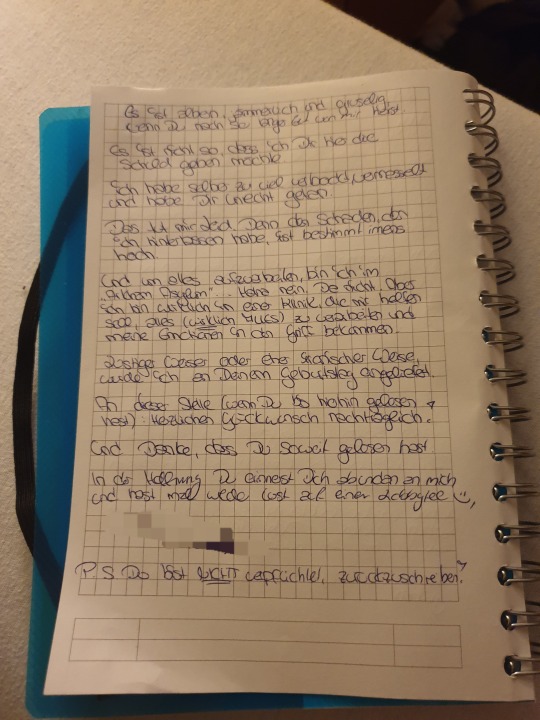 Es ist albern, und gruselig,
wenn Du noch so von mir hörst.
Es ist nicht so, dass ich Dir hier die
Schuld geben möchte
Ich habe selber zu viel
und habe Dir Unrecht getan.
Das tut mir leid. Denn der Schaden, den
ich hinterlassen habe, ist bestimmt immens
hoch.
Und um alles aufzuarbeiten, bin ich im
"Arkham Asylum"... Haha nein. Da nicht. Aber
ich bin wirklich in einer Klinik, die mir helfen
soll, alles (wirklich alles) zu verarbeiten und
meine in den Griff bekommen.
Lustiger Weise oder eher Weise,
wurde ich an Deinem Geburtstag
An dieser Stelle (wenn Du bis hierhin gelesen
hast) Herzlichen Glückwunsch nachträglich.
Und Danke, dass Du soweit gelesen hast
In der Hoffnung Du erinnerst Dich ab und an an mich
und hast mal wieder Lust auf einen
P.S Du bist NICHT verpflichtet, zurückzuschreiben.